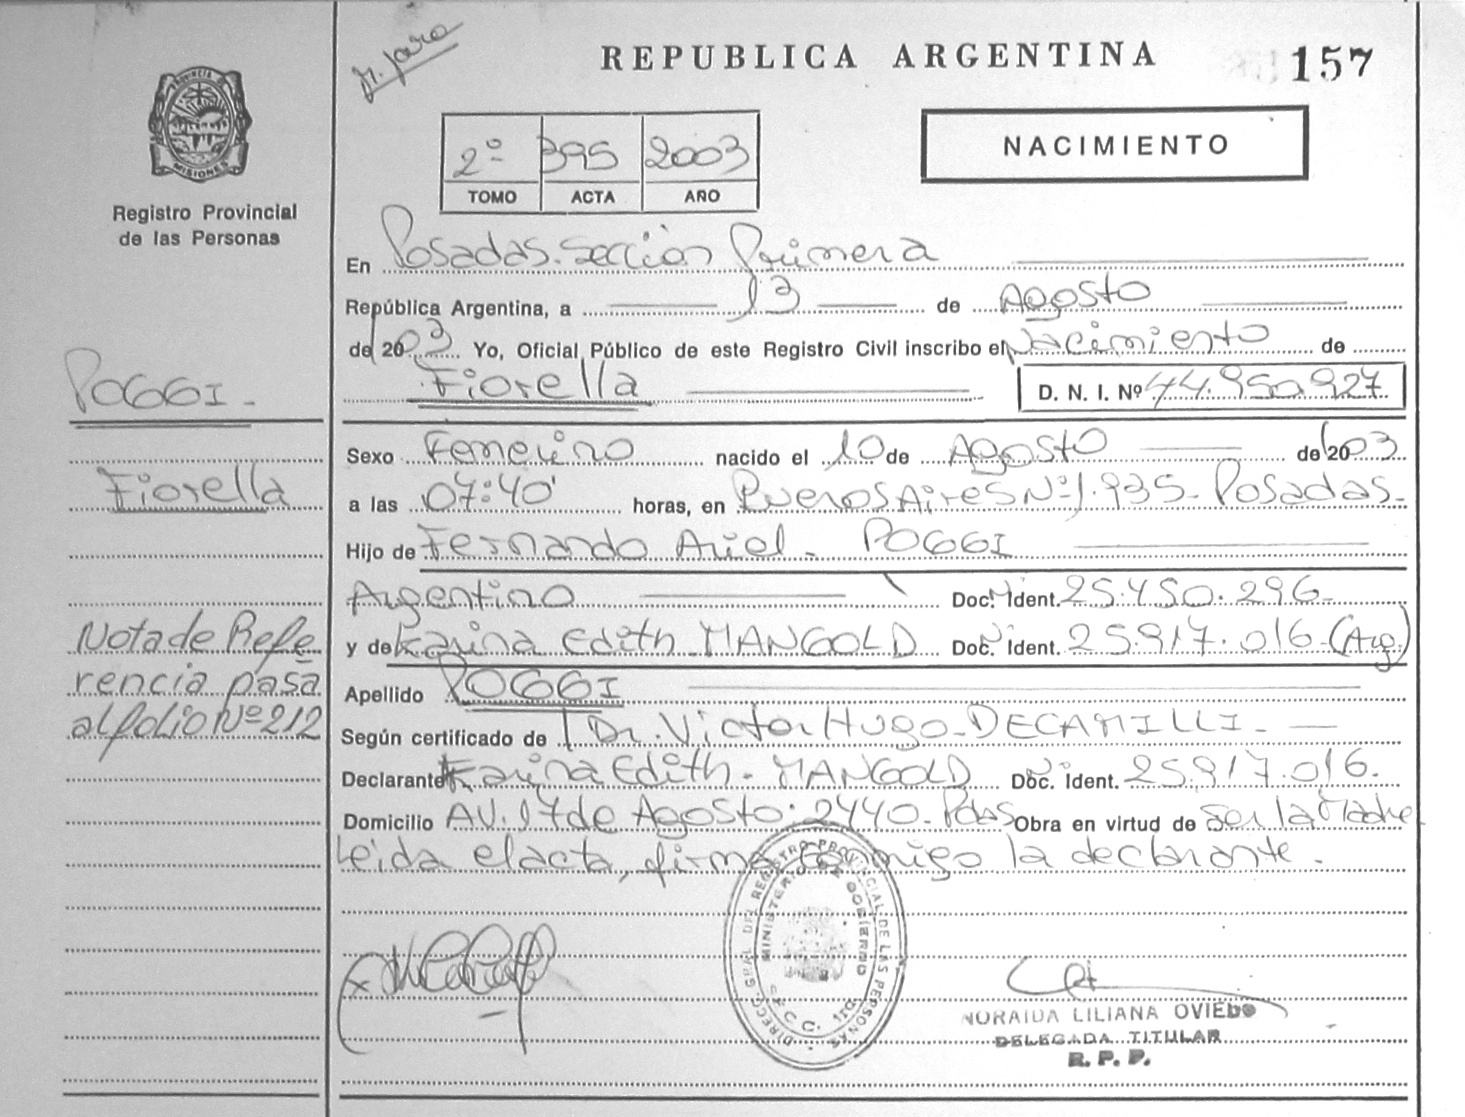 M. Jaro
REPUBLICA ARGENTINA
157
PROVINCIA DE
MISIONES
Registro Provincial
de las Personas
2º 395 2003
TOMO ACTA AÑO
NACIMIENTO
En Posadas. Sección Primera
República Argentina, a 13 de Agosto
de 2003 Yo, Oficial Público de este Registro Civil inscribo el Nacimiento de
Fiorella D. N. I. Nº 44.950.927
Sexo Femenino nacido el 10 de Agosto de 2003
a las 07:40' horas, en Buenos Aires Nº 1.935 - Posadas -
Hijo de Fernando Ariel - POGGI
Argentino Doc. Ident. 25.450.296 -
y de Karina Edith MANGOLD Doc. Ident. 25.917.016 (Arg)
Apellido POGGI
Según certificado de Dr. Victor Hugo - DECAMILLI -
Declarante Karina Edith - MANGOLD Doc. Ident. 25.917.016.
Domicilio AV. 17 de Agosto. 2440 - Pdas Obra en virtud de ser la Madre
Leida el acta, firma conmigo la declarante.
POGGI -
Fiorella
Nota de Refe
rencia pasa
al folio Nº 212
DIRECC. GRAL DEL REGISTRO PROVINCIAL DE LAS PERSONAS
MINISTERIO DE GOBIERNO
NORAIDA LILIANA OVIEDO
DELEGADA TITULAR
R. P. P.